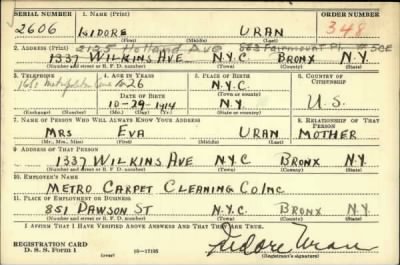 SERIAL NUMBER 1. NAME (Print) ORDER NUMBER
2606 ISIDORE URAN 348
(First) (Middle) (Last)
2. ADDRESS (Print) 2125 Holland Ave 883 Fairmount Pl. # 50E
1337 WILKINS AVE N.Y.C BRONX N.Y.
(Number and street or R. F. D. number) (Town) (County) (State)
3. TELEPHONE 4. AGE IN YEARS 5. PLACE OF BIRTH 6. COUNTRY OF CITIZENSHIP
26 N.Y.C.
DATE OF BIRTH (Town or county)
10-29-1914 N.Y. U.S.
(Exchange) (Number) (Mo.) (Day) (Yr.) (State or country)
7. NAME OF PERSON WHO WILL ALWAYS KNOW YOUR ADDRESS 8. RELATIONSHIP OF THAT PERSON
MRS EVA URAN MOTHER
(Mr., Mrs., Miss) (First) (Middle) (Last)
9. ADDRESS OF THAT PERSON
1337 WILKINS AVE N.Y.C BRONX N.Y.
(Number and street or R. F. D. number) (Town) (County) (State)
10. EMPLOYER'S NAME
METRO CARPET CLEANING CO INC
11. PLACE OF EMPLOYMENT OR BUSINESS
851 DAWSON ST N.Y.C BRONX N.Y.
(Number and street or R. F. D. number) (Town) (County) (State)
I AFFIRM THAT I HAVE VERIFIED ABOVE ANSWERS AND THAT THEY ARE TRUE.
REGISTRATION CARD
D. S. S. Form 1 (over) 16—17105 Isidore Uran
(Registrant's signature)